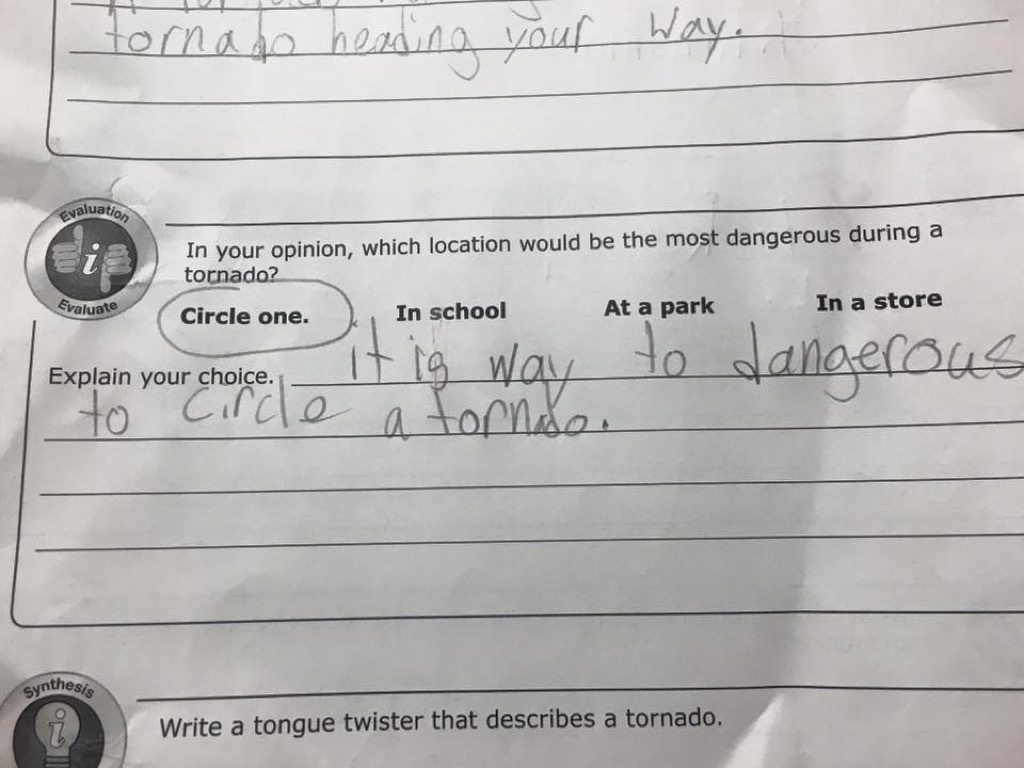 tornado heading your way.
Evaluation
i
Evaluate
In your opinion, which location would be the most dangerous during a
tornado?
Circle one. In school At a park In a store
Explain your choice. it is way to dangerous
to circle a tornado.
Synthesis
i
Write a tongue twister that describes a tornado.